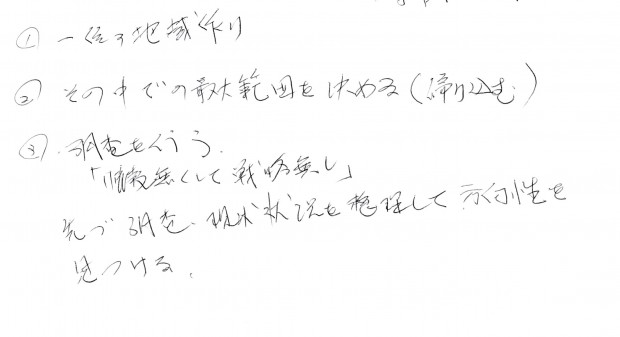 ① 一位の地域作り
② その中での最大範囲を決める(締り込む)
③ 調査を行う.
「情報無くして戦略無し」
先づ調査.現状状況を整理して方向性を
見つける.